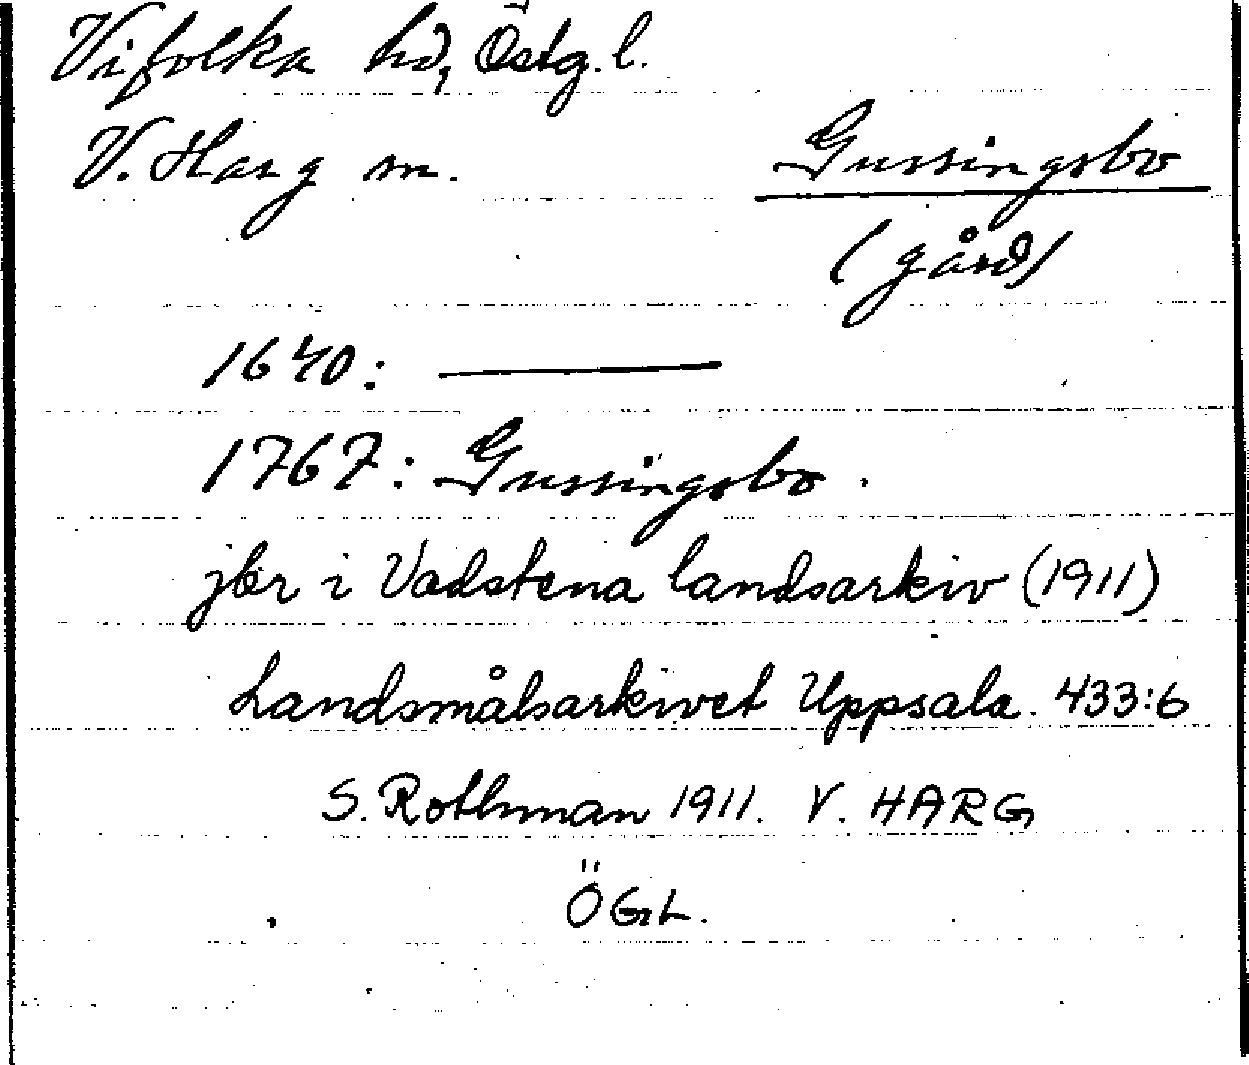 Vifolka hd, Östg. l.
V. Harg sn.
Gussingsbo
(gård)
1640: ———
1767: Gussingsbo.
jbr i Vadstena landsarkiv (1911)
Landsmålsarkivet Uppsala. 433:6
S. Rothman 1911. V. HARG
ÖGL.